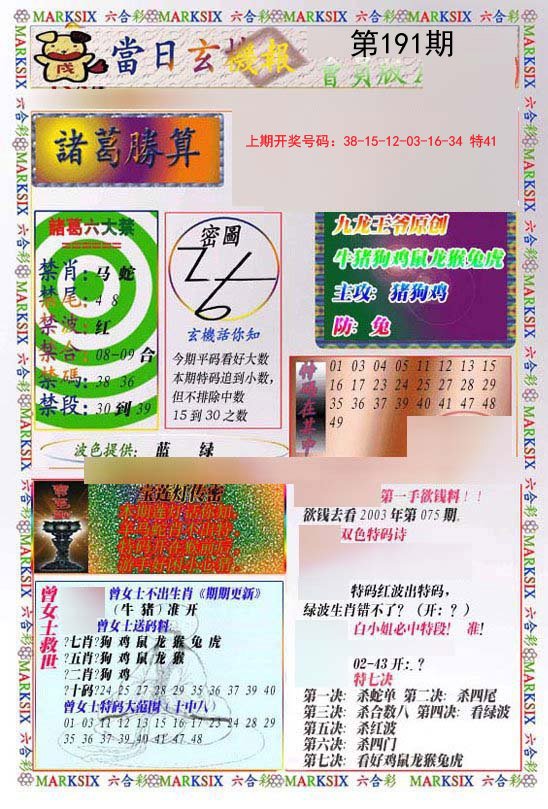 MARKSIX 六合彩 MARKSIX 六合彩 MARKSIX 六合彩 MARKSIX 六合彩
當日玄機報
第191期
諸葛勝算
上期开奖号码：38-15-12-03-16-34 特41
諸葛六大禁
禁肖：马 蛇
禁尾：4 8
禁波：红
禁合：08-09 合
禁碼：38 36
禁段：30 到 39
密圖
玄機話你知
今期平码看好大数
本期特码追到小数，
但不排除中数
15 到 30 之数
九龙王爷原创
牛猪狗鸡鼠龙猴兔虎
主攻：猪狗鸡
防：兔
特码在其中
01 03 04 05 11 12 13 15
16 17 23 24 25 27 28 29
35 36 37 39 40 41 47 48
49
波色提供： 蓝 绿
宝莲灯传密
第一手欲钱料！！
欲钱去看 2003 年第 075 期.
双色特码诗
特码红波出特码，
绿波生肖错不了？（开：？）
白小姐必中特段！ 准！
02-43 开：？
特七决
第一决：杀蛇单 第二决：杀四尾
第三决：杀合数八 第四决：看绿波
第五决：杀红波
第六决：杀四门
第七决：看好鸡鼠龙猴兔虎
曾女士救世
曾女士不出生肖《期期更新》
（牛 猪）准 开
曾女士送码料：
?七肖?狗 鸡 鼠 龙 猴 兔 虎
?五肖?狗 鸡 鼠 龙 猴
?二肖?狗 鸡
?十码?24 25 27 28 29 35 36 37 39 40
曾女士特码大范围（十中八）
01 03 11 12 13 15 16 17 23 24 28 29
35 36 37 39 40 41 47 48
MARKSIX 六合彩 MARKSIX 六合彩 MARKSIX 六合彩 MARKSIX 六合彩